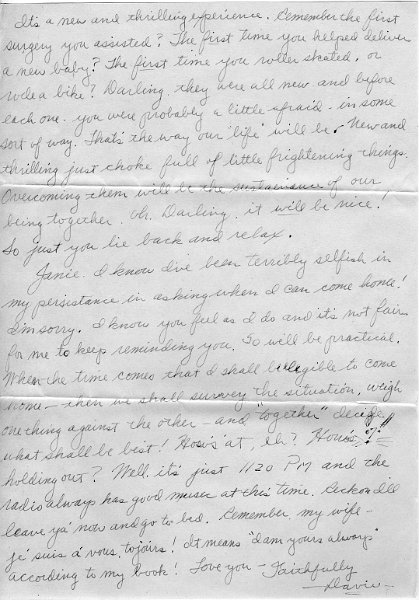 It's a new and thrilling experience. Remember the first
surgery you assisted? The first time you helped deliver
a new baby? The first time you roller skated, or
rode a bike? Darling, they were all new and before
each one you were probably a little afraid - in some
sort of way. That's the way our "life" will be. New and
thrilling just choke full of little frightening things.
Overcoming them will be the sustainance of our
being together. Oh, Darling, it will be nice!
So just you lie back and relax.
Janie. I know I've been terribly selfish in
my persistance in asking when I can come home!
I'm sorry. I know you feel as I do and it's not fair
for me to keep reminding you. So will be practical.
When the time comes that I shall be elegible to come
home - then we shall survey the situation, weigh
one thing against the other - and "together" decide
what shall be best! How's 'at, eh? How's
holding out? Well, it's just 1120 PM and the
radio always has good music at this time. Reckon I'll
leave ya' now and go to bed. Remember, my wife -
je' suis á vous, tojoirs! It means "I am yours always"
according to my book! Love you - Faithfully
- Davie -